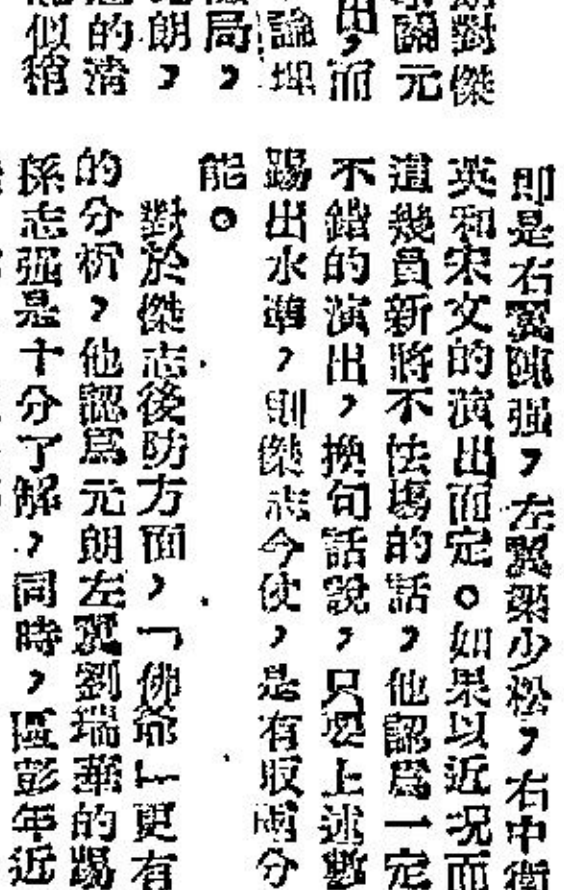 對傑
關元
出，而
論埋
局，
朗，
的清
似稍
即是右翼陳强，左翼梁少松，右中衛
英和宋文的演出而定。如果以近况而
這幾員新將不怯塲的話，他認爲一定
不錯的演出，換句話說，只要上述數
踢出水準，則傑志今仗，是有取兩分
能。
對於傑志後防方面，「佛爺」更有
的分析，他認爲元朗左翼劉瑞華的踢
孫志强是十分了解，同時，區彭年近